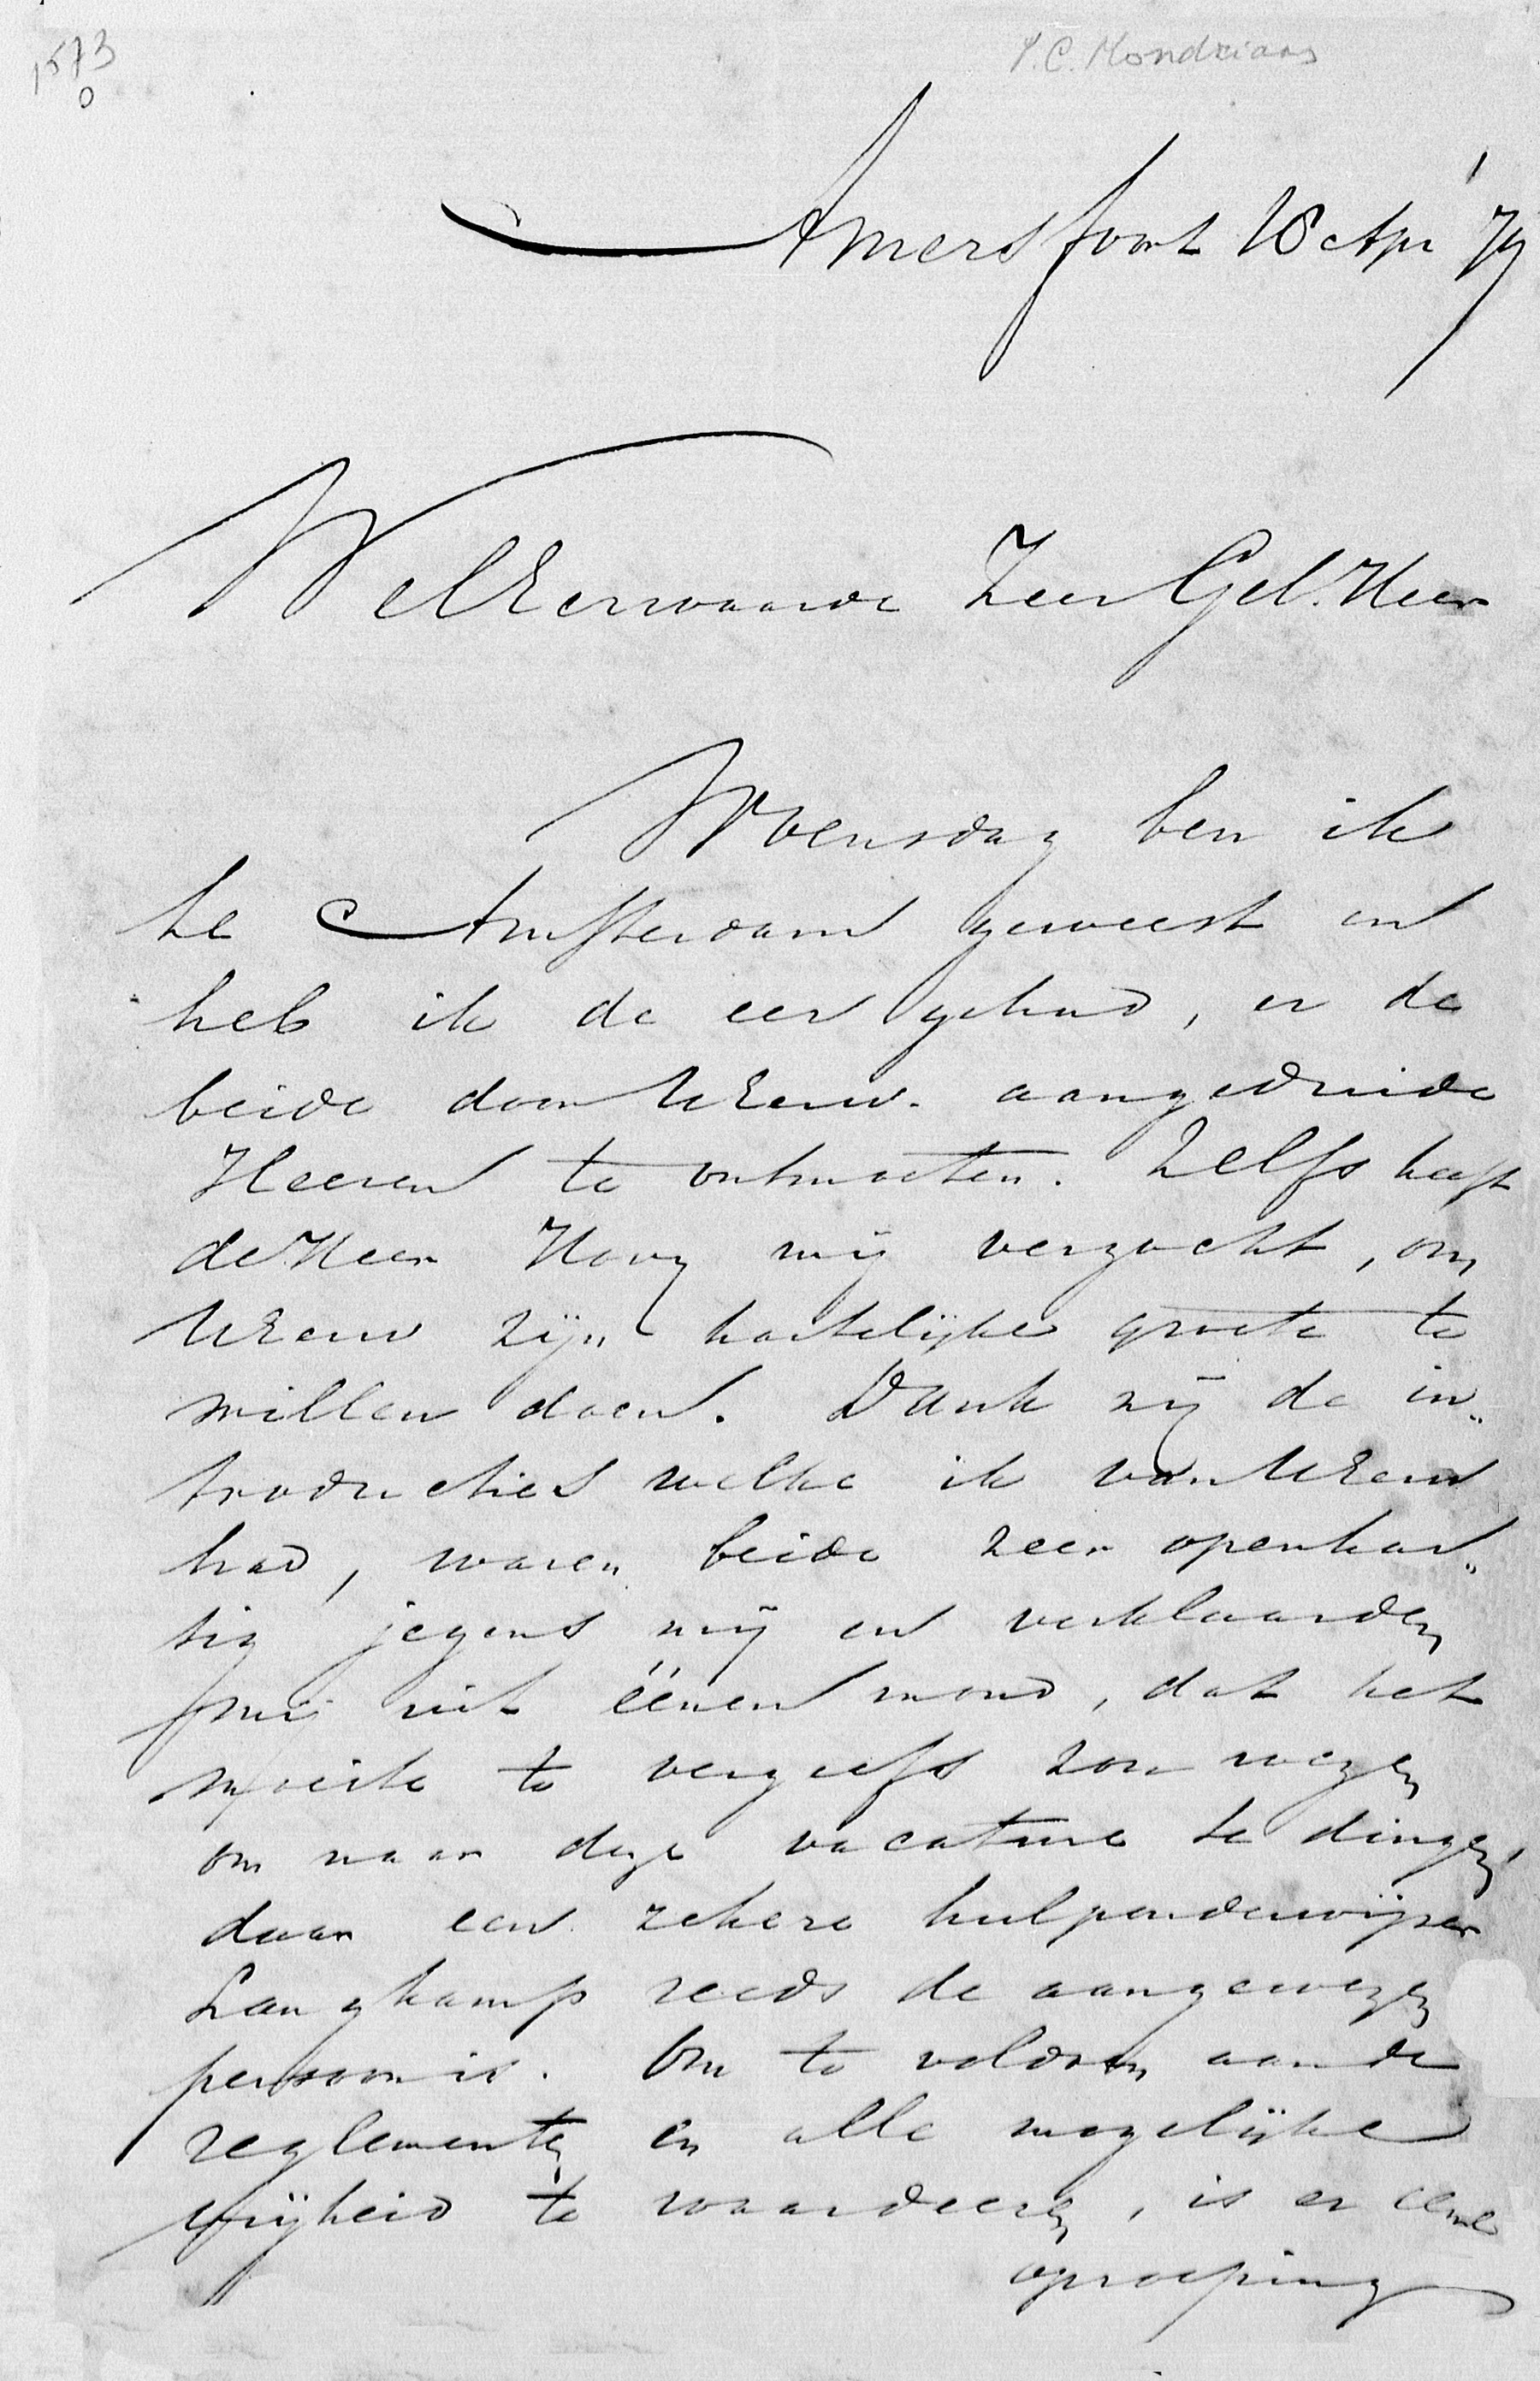 1573
0
P.C. Mondriaan
Amersfoort 18 Apr '79
WelEerwaarde Zeer Gel. Heer
Woensdag ben ik
te Amsterdam geweest en
heb ik de eer gehad, er de
beide door UEerw. aangeduide
Heeren te ontmoeten. Zelfs heeft
de Heer Hovy mij verzocht, om
UEerw zijn hartelijke groete te
willen doen. Dank zij de in„
troducties welke ik van UEerw
had, waren beide zeer openhar„
tig jegens mij en verklaarden
mij uit éénen mond, dat het
moeite te vergeefs zou wezen
om naar deze vacature te dingen,
daar een zekere hulponderwijzer
Langkamp reeds de aangewezen
persoon is. Om te voldoen aan de
reglementen en alle mogelijke
vrijheid te waardeeren, is er eene
oproeping